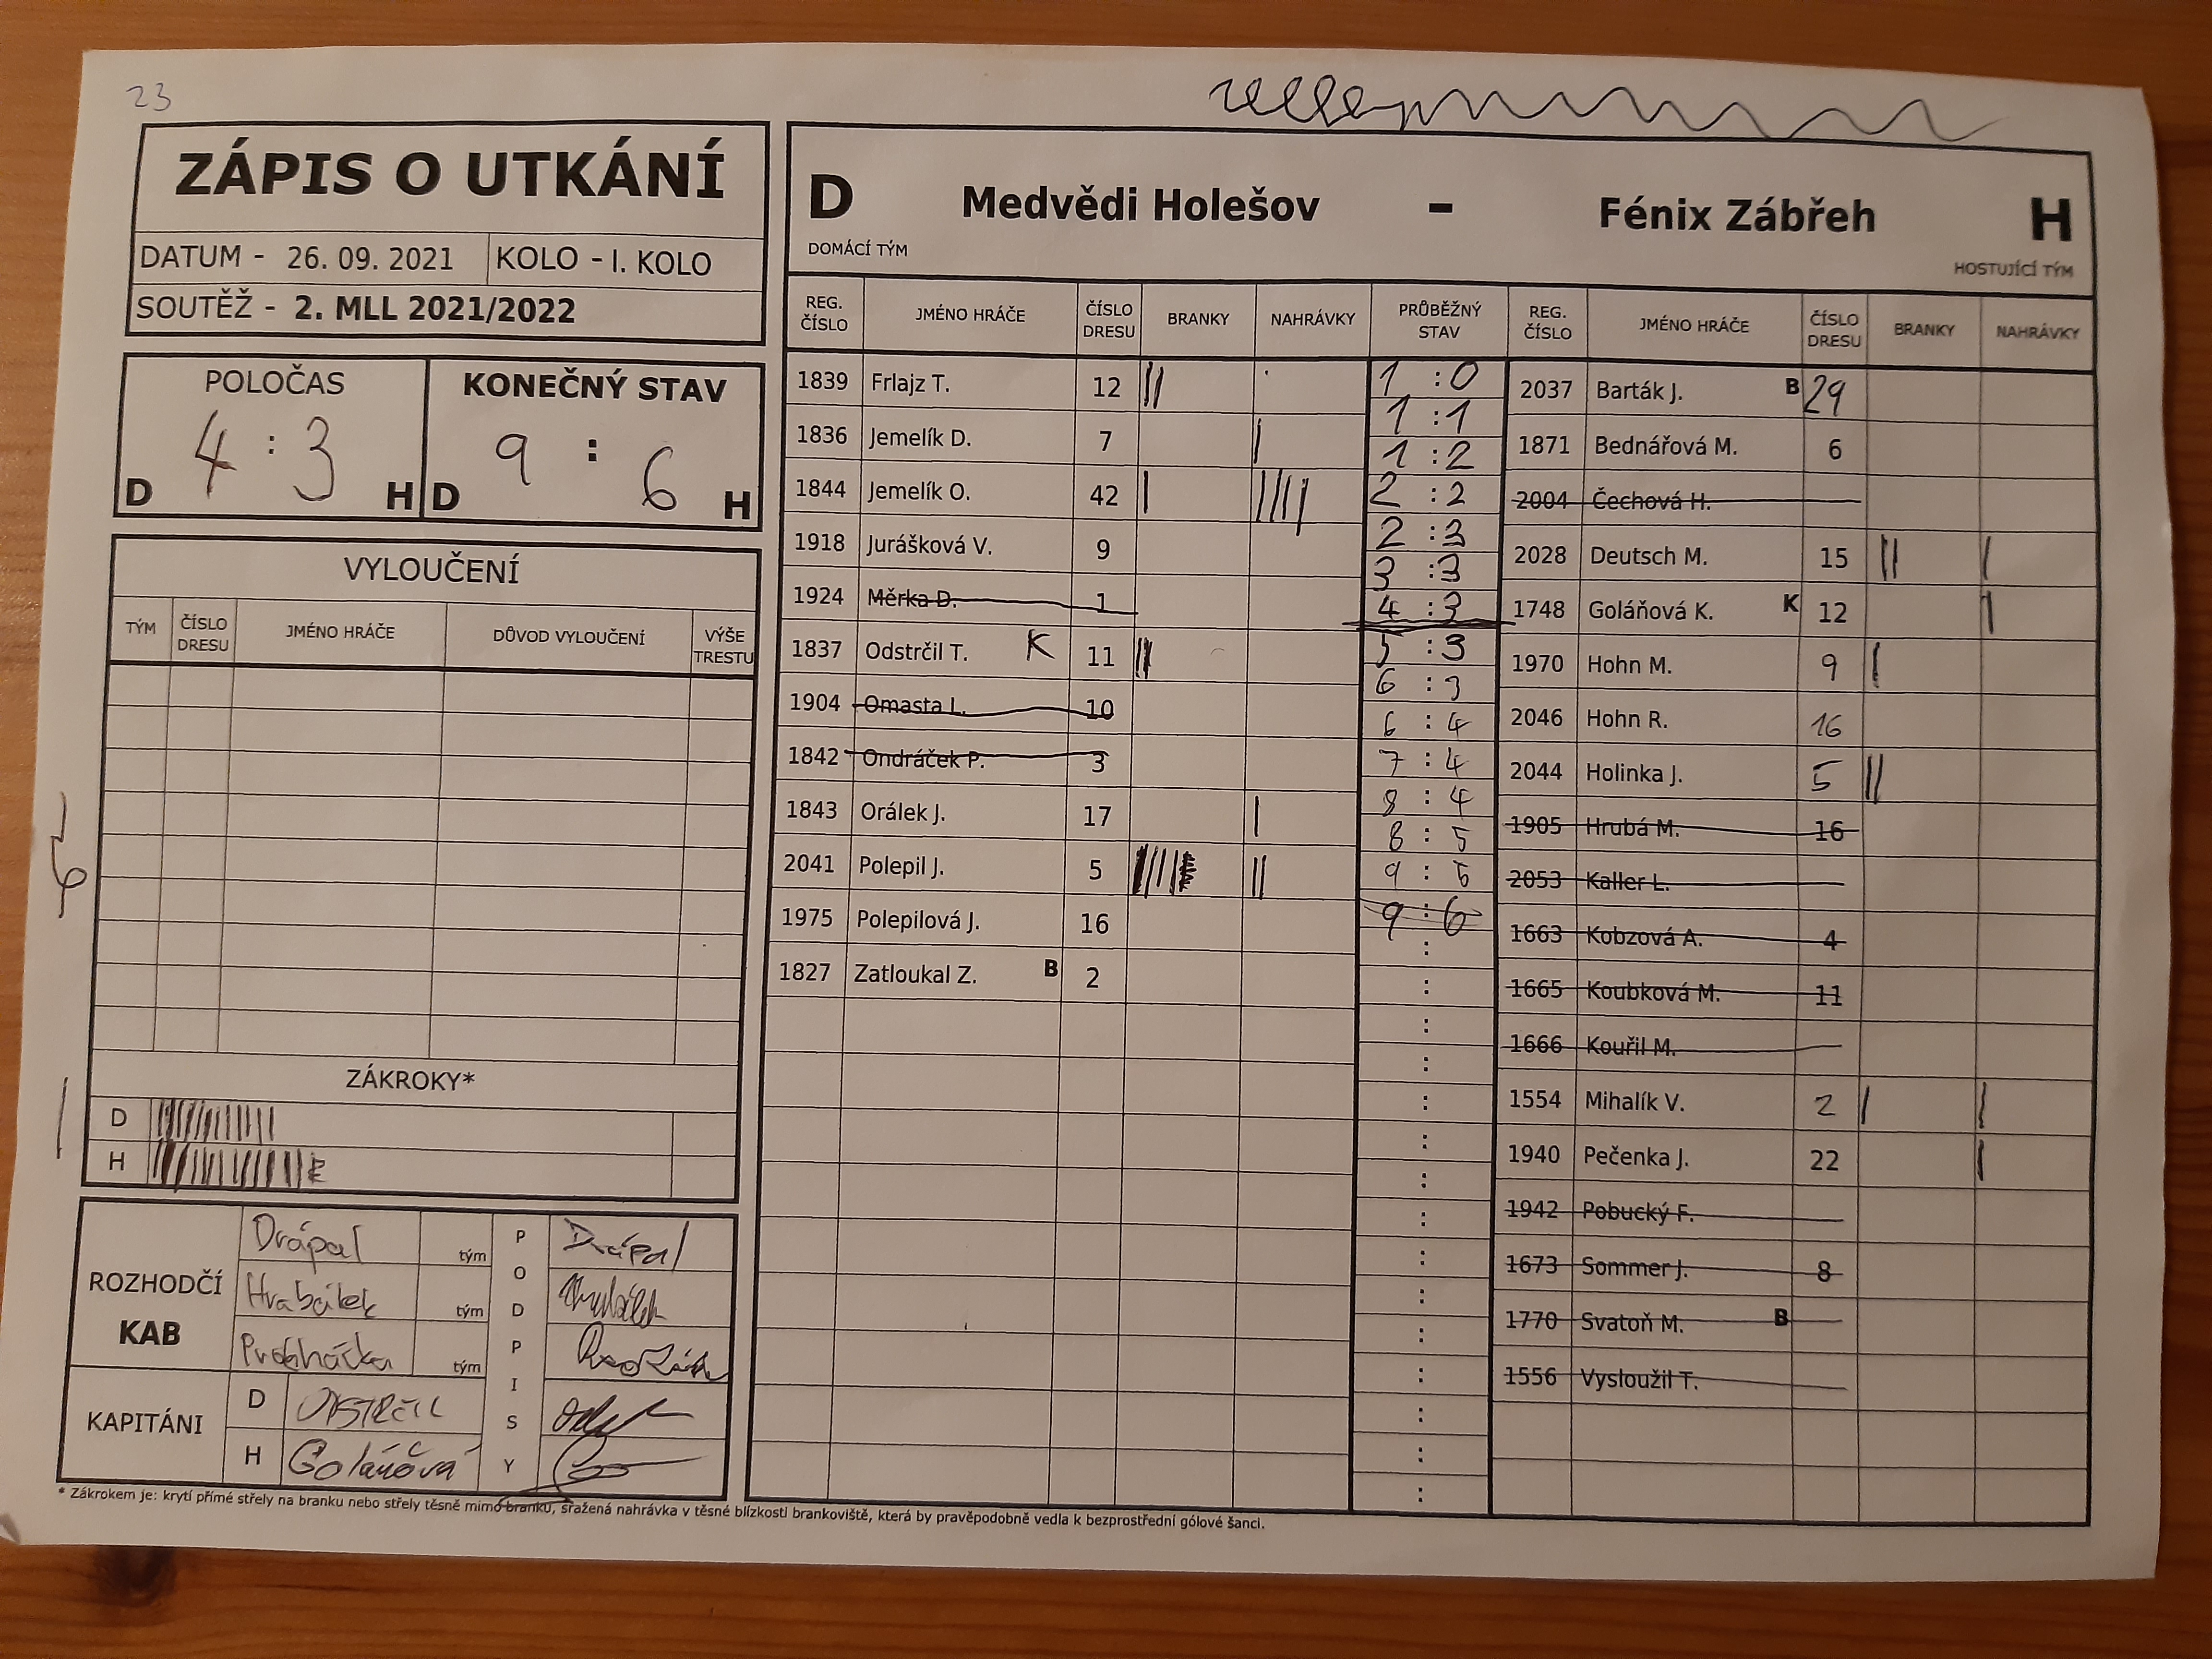 23
ZÁPIS O UTKÁNÍ
DATUM - 26. 09. 2021 KOLO - I. KOLO
SOUTĚŽ - 2. MLL 2021/2022
POLOČAS KONEČNÝ STAV
D 4 : 3 H D 9 : 6 H
VYLOUČENÍ
TÝM ČÍSLO DRESU JMÉNO HRÁČE DŮVOD VYLOUČENÍ VÝŠE TRESTU
ZÁKROKY*
D
H
ROZHODČÍ KAB
Drápal tým Drápal
Hrabálek tým Hrabálek
Procházka tým
KAPITÁNI
D ODSTRČIL
H Goláňová
PODPISY
D Medvědi Holešov - Fénix Zábřeh H
DOMÁCÍ TÝM HOSTUJÍCÍ TÝM
REG. ČÍSLO JMÉNO HRÁČE ČÍSLO DRESU BRANKY NAHRÁVKY PRŮBĚŽNÝ STAV REG. ČÍSLO JMÉNO HRÁČE ČÍSLO DRESU BRANKY NAHRÁVKY
1839 Frlajz T. 12 ||
1836 Jemelík D. 7 |
1844 Jemelík O. 42 | ||||
1918 Jurášková V. 9
1924 Měrka D. 1
1837 Odstrčil T. K 11 ||
1904 Omasta L. 10
1842 Ondráček P. 3
1843 Orálek J. 17 |
2041 Polepil J. 5 ||
1975 Polepilová J. 16
1827 Zatloukal Z. B 2
1 : 0
1 : 1
1 : 2
2 : 2
2 : 3
3 : 3
4 : 3
5 : 3
6 : 3
6 : 4
7 : 4
8 : 4
8 : 5
9 : 5
9 : 6
2037 Barták J. B 29
1871 Bednářová M. 6
2004 Čechová H.
2028 Deutsch M. 15 || |
1748 Goláňová K. K 12 |
1970 Hohn M. 9 |
2046 Hohn R. 16
2044 Holinka J. 5 ||
1905 Hrubá M. 16
2053 Kaller L.
1663 Kobzová A. 4
1665 Koubková M. 11
1666 Kouřil M.
1554 Mihalík V. 2 | |
1940 Pečenka J. 22 |
1942 Pobucký F.
1673 Sommer J. 8
1770 Svatoň M. B
1556 Vysloužil T.
* Zákrokem je: krytí přímé střely na branku nebo střely těsně mimo branku, sražená nahrávka v těsné blízkosti brankoviště, která by pravěpodobně vedla k bezprostřední gólové šanci.